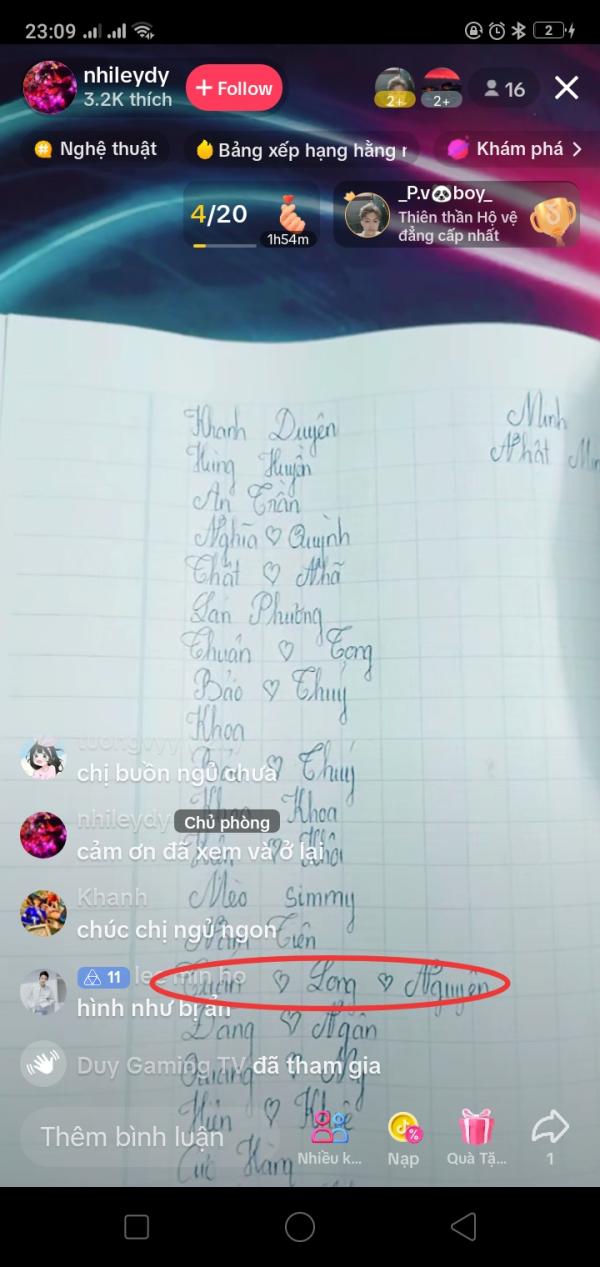 23:09
2
nhileydy
3.2K thích
+ Follow
2+
2+
16
Nghệ thuật
Bảng xếp hạng hằng
Khám phá
4/20
1h54m
_P.v🐼boy_
Thiên thần Hộ vệ
đẳng cấp nhất
Khanh Duyên
Minh
Hùng Huyền
Nhật Min
An Trần
Nghĩa ♡ Quỳnh
Thật ♡ Nhã
Lan Phương
Thuân ♡ Tong
Bảo ♡ Thuý
Khoa
♡ Thuý
chị buồn ngủ chưa
Khoa
nhileydy
Chủ phòng
cảm ơn đã xem và ở lại
Khanh
Mèo simmy
chúc chị ngủ ngon
Tiên
11
lee min ho
♡ Long ♡ Nguyên
hình như bị ẩn
Đang ♡ Ngân
Duy Gaming TV đã tham gia
Hiên ♡
Thêm bình luận
Nhiều k...
Nạp
Quà Tặ...
1
Cúc Hàng